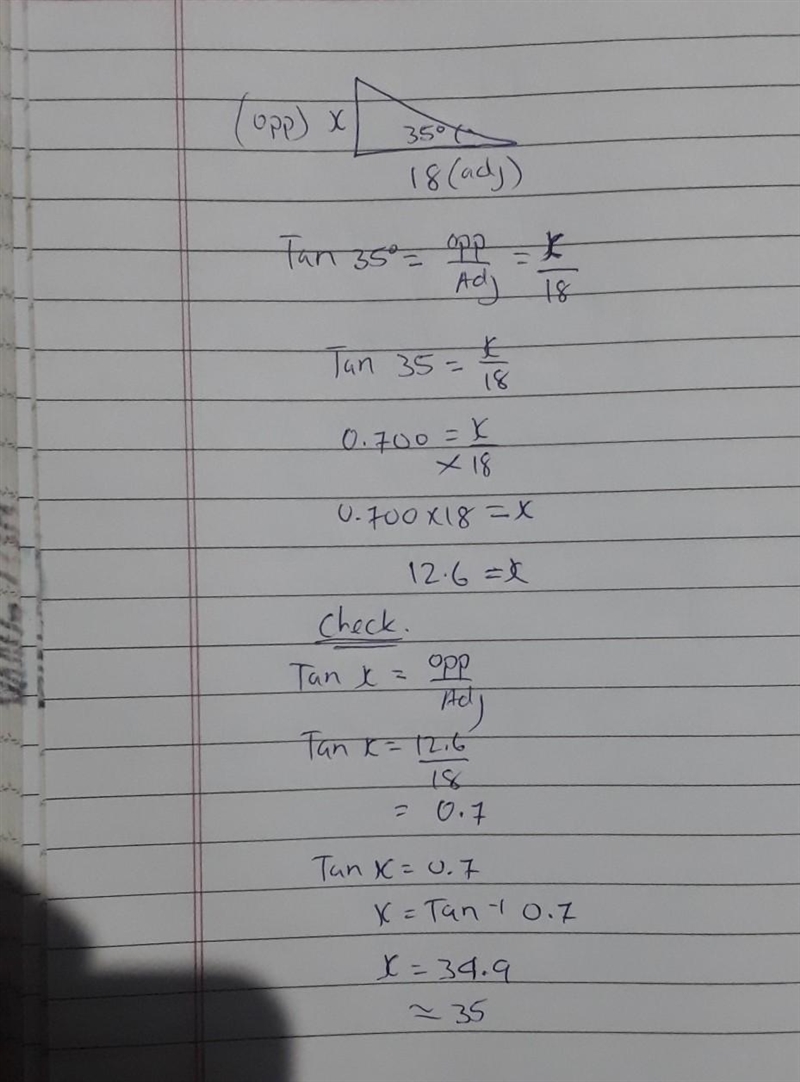 (opp) x 35°
18 (adj)
Tan 35° = opp/Adj = x/18
Tan 35 = x/18
0.700 = x/×18
0.700×18 = x
12.6 = x
Check.
Tan x = opp/Adj
Tan x = 12.6/18
= 0.7
Tan x = 0.7
x = Tan⁻¹ 0.7
x = 34.9
≃ 35